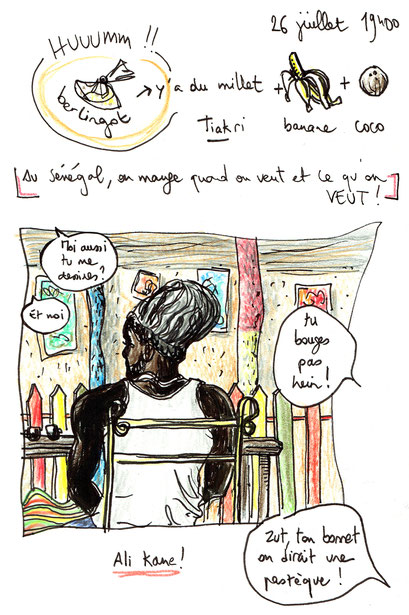 26 juillet 19H00
HUUUMM !!
berlingot
→ y'a du millet + banane + coco
Tiakri
Au Sénégal, on mange quand on veut et ce qu'on
VEUT !
Moi aussi
tu me
dessines ?
Et moi
tu
bouges
pas
hein !
Ali Kane !
Zut, ton bonnet
on dirait une
pastèque !